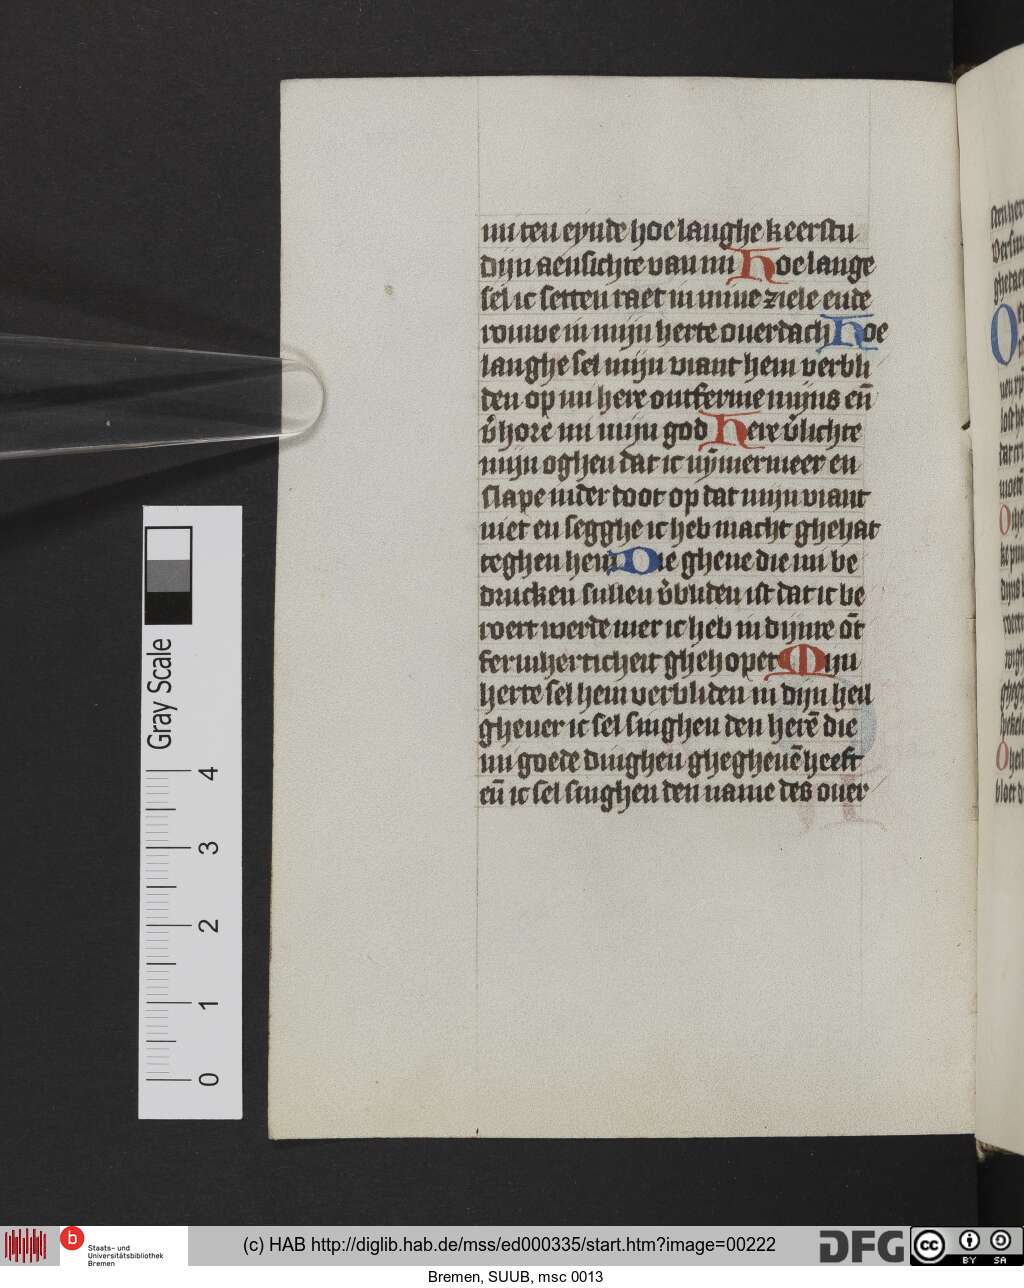 mi ten eynde hoe langhe keerstu
dijn aensichte van mi Hoe lange
sel ic setten raet in mine ziele ende
rouwe in mijn herte ouer dach Hoe
langhe sel mijn viant hem verbli
den op mi here ontferme mijns en̄
v̉hore mi mijn god Here v̉lichte
mijn oghen dat ic nȳmermeer en
slape in der doot op dat mijn viant
niet en segghe ic heb macht ghehat
teghen hem Die ghene die mi be
drucken sullen v̉bliden ist dat ic be
roert werde mer ic heb in dijnre ōt
fermherticheit ghehopet Mijn
herte sel hem verbliden in dijn heil
gheuer ic sel singhen den herē die
mi goede dinghen ghegheuē heeft
en̄ ic sel singhen den name des ouer
Gray Scale
4
3
2
1
0
b Staats- und
Universitätsbibliothek
Bremen
(c) HAB http://diglib.hab.de/mss/ed000335/start.htm?image=00222
DFG
cc BY SA
Bremen, SUUB, msc 0013